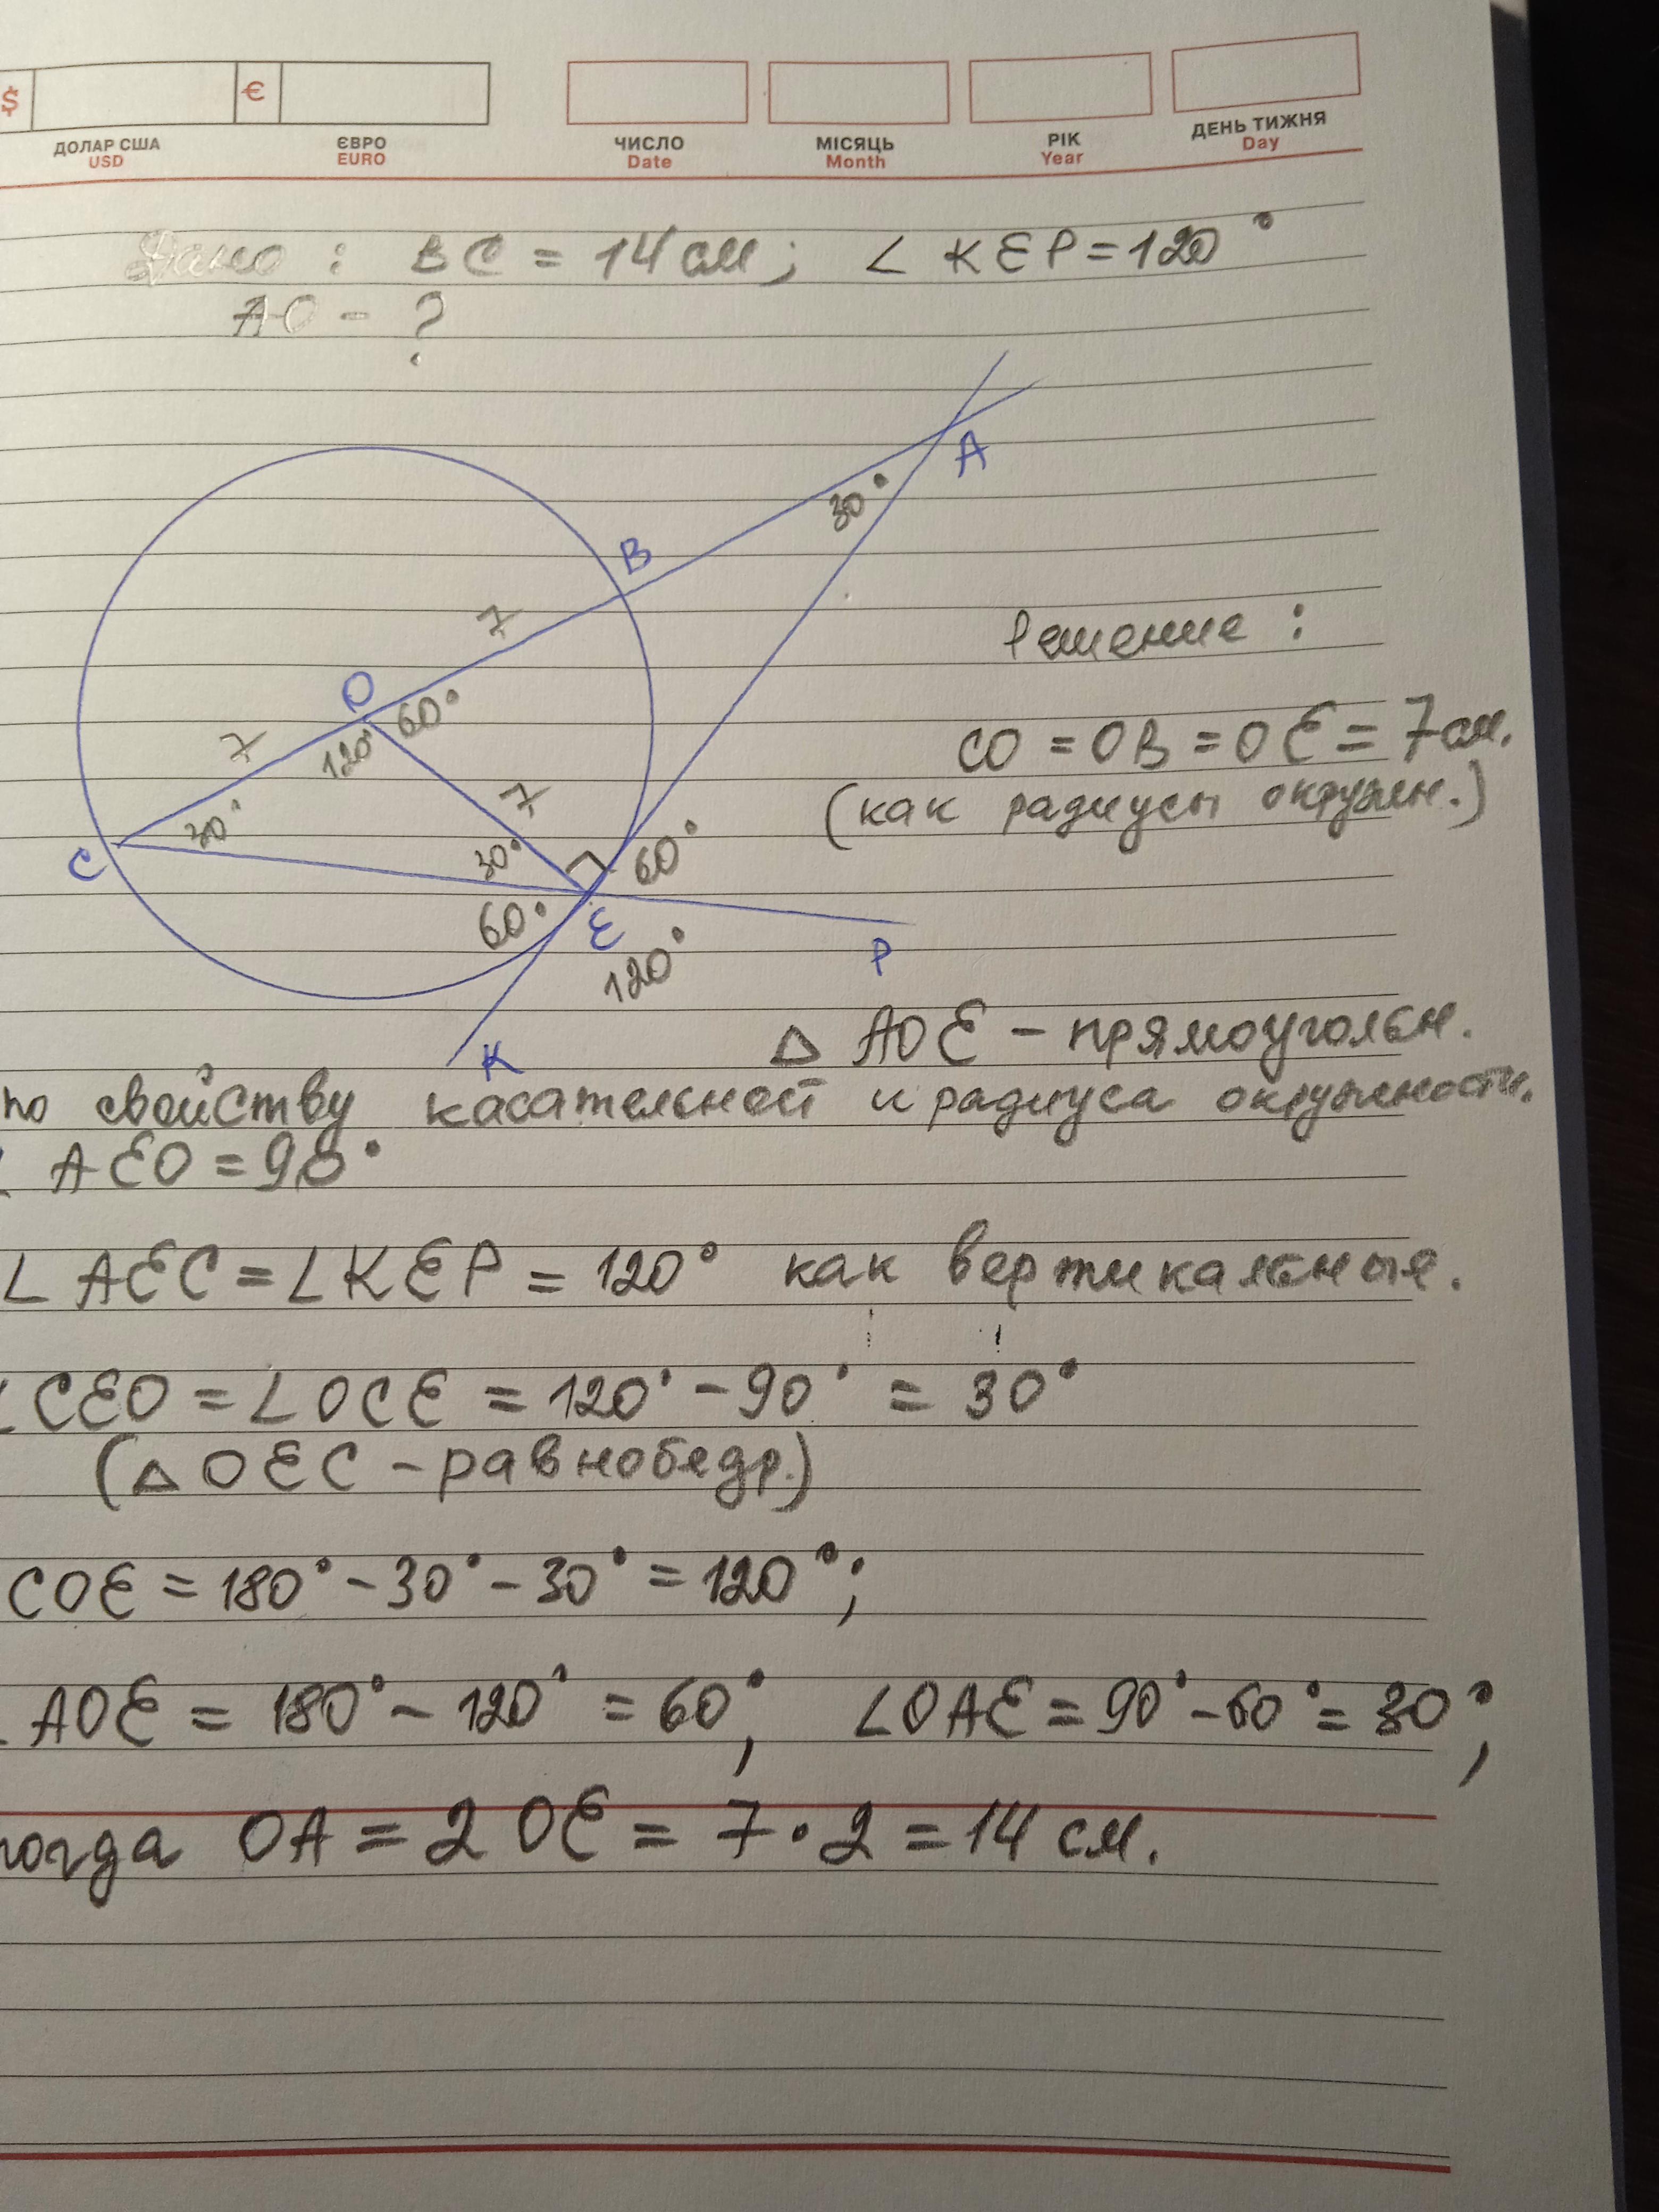 $ €
ДОЛАР США ЄВРО ЧИСЛО МІСЯЦЬ РІК ДЕНЬ ТИЖНЯ
USD EURO Date Month Year Day
Дано : BC = 14 см; ∠ KEP = 120°
AO - ?
A
30°
B
7
O
60°
120°
7
7
30°
C
30°
60°
60°
E
120°
P
K
Решение :
CO = OB = OE = 7 см.
(как радиусы окружн.)
△ AOE – прямоугольн.
по свойству касательной и радиуса окружности.
∠ AEO = 90°
∠ AEC = ∠ KEP = 120° как вертикальные.
∠ CEO = ∠ OCE = 120° - 90° = 30°
(△ OEC – равнобедр.)
COE = 180° - 30° - 30° = 120°;
∠ AOE = 180° - 120° = 60°, ∠OAE = 90° - 60° = 30°;
тогда OA = 2 OE = 7 · 2 = 14 см.